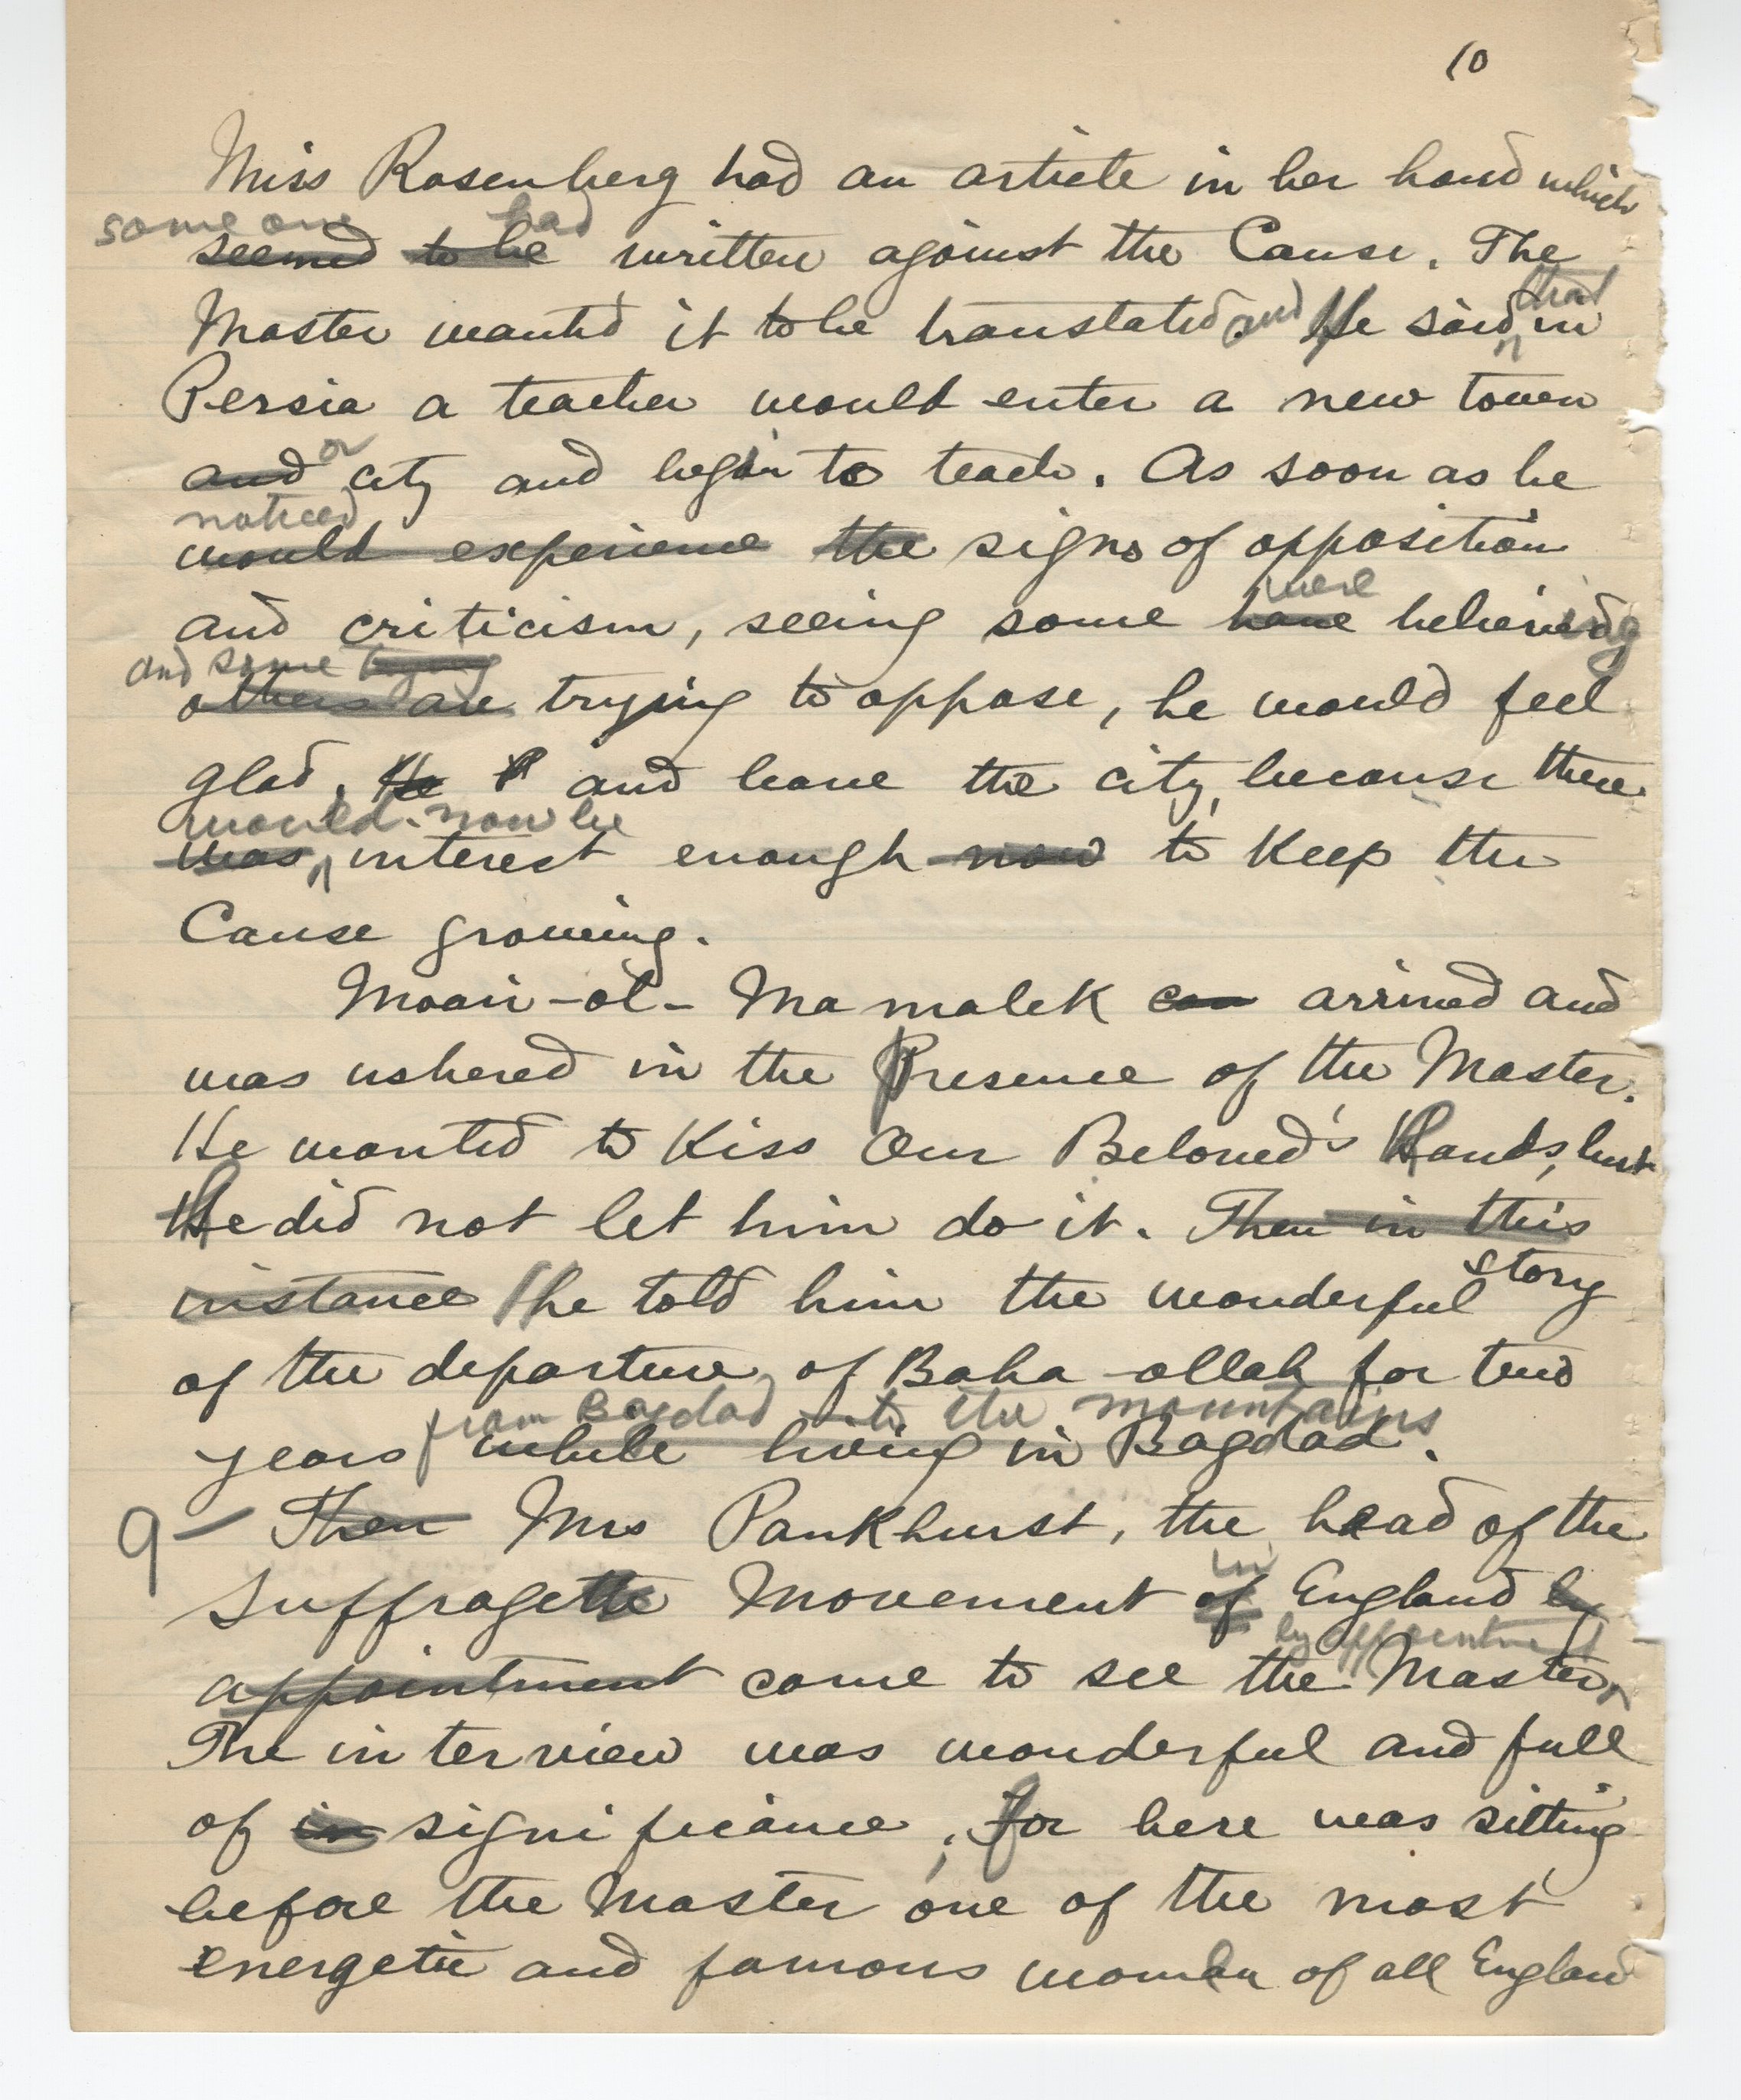 10
Miss Rosenberg had an article in her hand which
some one had
seemed to be written against the Cause. The
that
Master wanted it to be translated. and He said in
Persia a teacher would enter a new town
or
and city and begin to teach. As soon as he
noticed
would experience the signs of opposition
were
and criticism, seeing some have believing
and some
others are trying to oppose, he would feel
glad. He and leave the city, because there
would now be
was interest enough now to keep the
Cause growing.
Moair-ol-Mamalek arrived and
was ushered in the Presence of the Master.
He wanted to kiss Our Beloved's Hands, but
He did not let him do it. Then in this
story
instance he told him the wonderful
of the departure of Baha-ollah for two
from Bagdad to the mountains
years while living in Bagdad.
9- Then Mrs Pankhurst, the head of the
in
Suffragette Movement of England by
by appointment
appointment came to see the Master
The interview was wonderful and full
of in significance, for here was sitting
before the Master one of the most
energetic and famous woman of all England